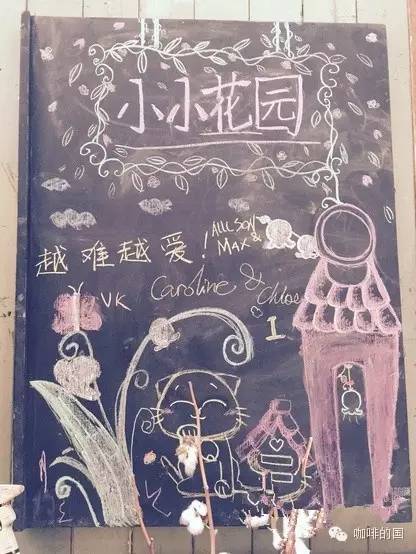 小小花园
越难越爱！
ALLISON
MAX &
VK
Caroline & Chloe
I
咖啡的国